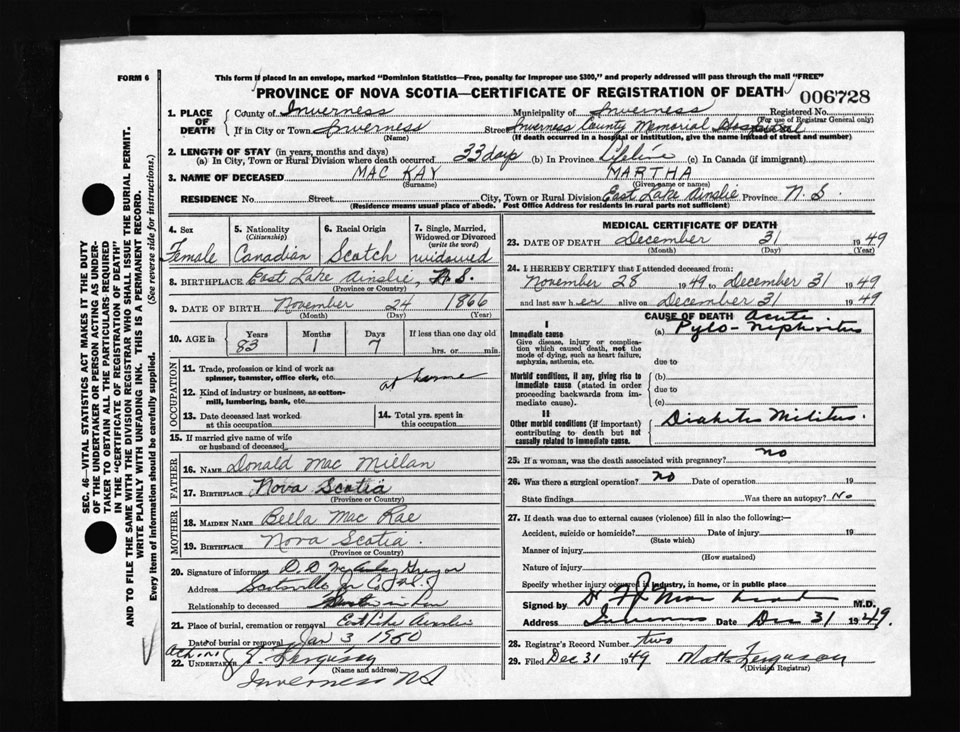 FORM 6
This form if placed in an envelope, marked "Dominion Statistics—Free, penalty for improper use $300," and properly addressed will pass through the mail "FREE"
PROVINCE OF NOVA SCOTIA—CERTIFICATE OF REGISTRATION OF DEATH
006728
1. PLACE OF DEATH
County of Inverness Municipality of Inverness Registered No.
(For use of Registrar General only)
If in City or Town Inverness Street Inverness County Memorial Hospital
(Name) (If death occurred in a hospital or institution, give the name instead of street and number)
2. LENGTH OF STAY (in years, months and days)
(a) In City, Town or Rural Division where death occurred 33 days (b) In Province Lifetime (c) In Canada (if immigrant)
3. NAME OF DECEASED MAC KAY MARTHA
(Surname) (Given name or names)
RESIDENCE No. Street City, Town or Rural Division East Lake Ainslie Province N.S.
(Residence means usual place of abode. Post Office Address for residents in rural parts not sufficient)
SEC. 46—VITAL STATISTICS ACT MAKES IT THE DUTY
OF THE UNDERTAKER OR PERSON ACTING AS UNDER-
TAKER TO OBTAIN ALL THE PARTICULARS REQUIRED
IN THE "CERTIFICATE OF REGISTRATION OF DEATH"
AND TO FILE THE SAME WITH THE DIVISION REGISTRAR WHO SHALL ISSUE THE BURIAL PERMIT.
WRITE PLAINLY WITH UNFADING INK. THIS IS A PERMANENT RECORD.
Every item of information should be carefully supplied. (See reverse side for instructions.)
4. Sex Female
5. Nationality (Citizenship) Canadian
6. Racial Origin Scotch
7. Single, Married, Widowed or Divorced (write the word) widowed
8. BIRTHPLACE East Lake Ainslie, N.S.
(Province or Country)
9. DATE OF BIRTH November 24 1866
(Month) (Day) (Year)
10. AGE in Years 83 Months 1 Days 7 If less than one day old
hrs. or min.
OCCUPATION
11. Trade, profession or kind of work as
spinner, teamster, office clerk, etc. at home
12. Kind of industry or business, as cotton-
mill, lumbering, bank, etc.
13. Date deceased last worked
at this occupation
14. Total yrs. spent in
this occupation
15. If married give name of wife
or husband of deceased
FATHER
16. NAME Donald Mac Millan
17. BIRTHPLACE Nova Scotia
(Province or Country)
MOTHER
18. MAIDEN NAME Bella Mac Rae
19. BIRTHPLACE Nova Scotia.
(Province or Country)
20. Signature of informant D.D.
Address
Relationship to deceased in Law
21. Place of burial, cremation or removal East Lake Ainslie
Date of burial or removal Jan 3 1950
22. UNDERTAKER Ferguson
(Name and address)
Inverness NS
MEDICAL CERTIFICATE OF DEATH
23. DATE OF DEATH December 31 1949
(Month) (Day) (Year)
24. I HEREBY CERTIFY that I attended deceased from:
November 28 1949 to December 31 1949
and last saw her alive on December 31 1949
CAUSE OF DEATH
I
Immediate cause (a) Acute Pylo-Niphritis
Give disease, injury or complica-
tion which caused death, not the
mode of dying, such as heart failure,
asphyxia, asthenia, etc.
due to
Morbid conditions, if any, giving rise to (b)
immediate cause (stated in order
proceeding backwards from im-
mediate cause).
due to
(c)
II
Other morbid conditions (if important) Diabitis Militus.
contributing to death but not
causally related to immediate cause.
25. If a woman, was the death associated with pregnancy? no
26. Was there a surgical operation? no Date of operation 19
State findings Was there an autopsy? No
27. If death was due to external causes (violence) fill in also the following:—
Accident, suicide or homicide? Date of injury 19
(State which)
Manner of injury
(How sustained)
Nature of injury
Specify whether injury occurred in industry, in home, or in public place
Signed by Dr. M.D.
Address Inverness Date Dec 31 1949.
28. Registrar's Record Number two
29. Filed Dec 31 1949 Ferguson
(Division Registrar)